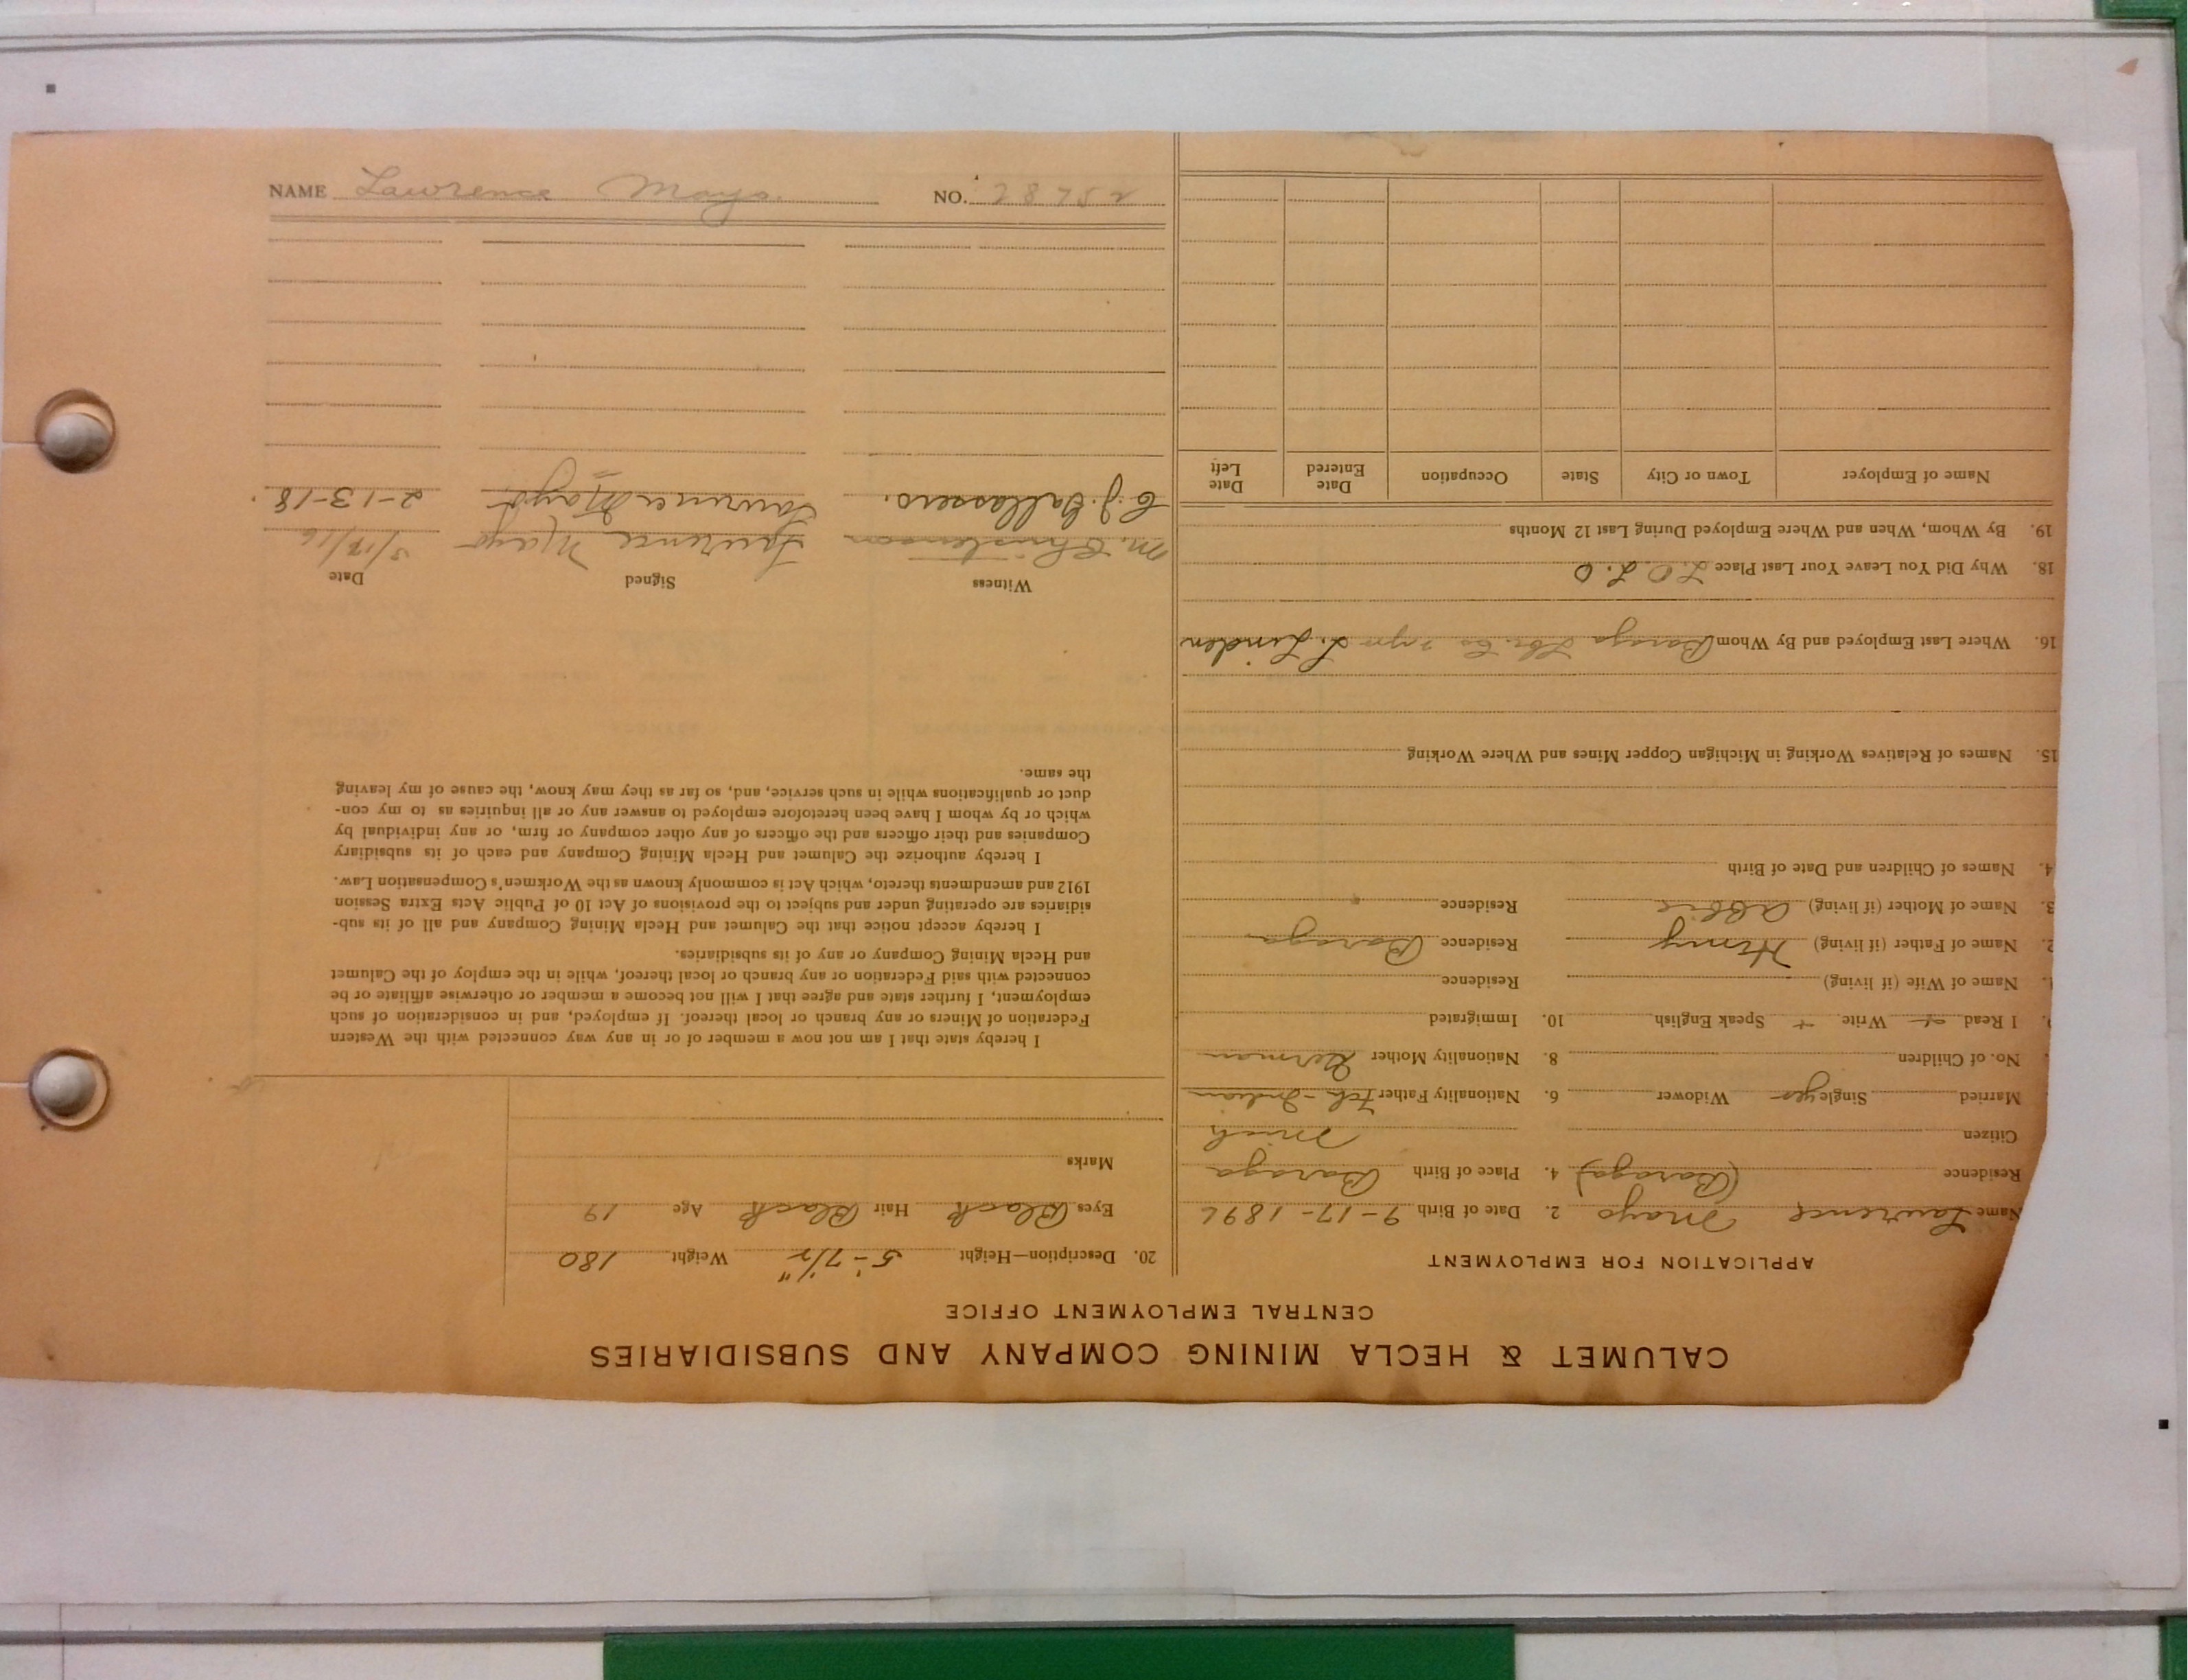 CALUMET & HECLA MINING COMPANY AND SUBSIDIARIES
CENTRAL EMPLOYMENT OFFICE
APPLICATION FOR EMPLOYMENT
Name Lawrence Mayo 2. Date of Birth 9-17-1896
Residence (Baraga) 4. Place of Birth Baraga
Citizen Mich
Married Single yes Widower 6. Nationality Father Fch-Indian
No. of Children 8. Nationality Mother German
I Read Write Speak English 10. Immigrated
Name of Wife (if living) Residence
2. Name of Father (if living) Henry Residence Baraga
3. Name of Mother (if living) Abbie Residence
4. Names of Children and Date of Birth
15. Names of Relatives Working in Michigan Copper Mines and Where Working
16. Where Last Employed and By Whom Baraga Lbr. Co L. Linden
18. Why Did You Leave Your Last Place L.O.L.O
19. By Whom, When and Where Employed During Last 12 Months
Name of Employer Town or City State Occupation Date Entered Date Left
20. Description—Height 5'-7½" Weight 180
Eyes Black Hair Black Age 19
Marks
I hereby state that I am not now a member of or in any way connected with the Western
Federation of Miners or any branch or local thereof. If employed, and in consideration of such
employment, I further state and agree that I will not become a member or otherwise affiliate or be
connected with said Federation or any branch or local thereof, while in the employ of the Calumet
and Hecla Mining Company or any of its subsidiaries.
I hereby accept notice that the Calumet and Hecla Mining Company and all of its sub-
sidiaries are operating under and subject to the provisions of Act 10 of Public Acts Extra Session
1912 and amendments thereto, which Act is commonly known as the Workmen's Compensation Law.
I hereby authorize the Calumet and Hecla Mining Company and each of its subsidiary
Companies and their officers and the officers of any other company or firm, or any individual by
which or by whom I have been heretofore employed to answer any or all inquiries as to my con-
duct or qualifications while in such service, and, so far as they may know, the cause of my leaving
the same.
Witness Signed Date
M. Christenson Lawrence Mayo
C. J. Lawrence Mayo 2-13-18.
NAME Lawrence Mayo. NO. 28752